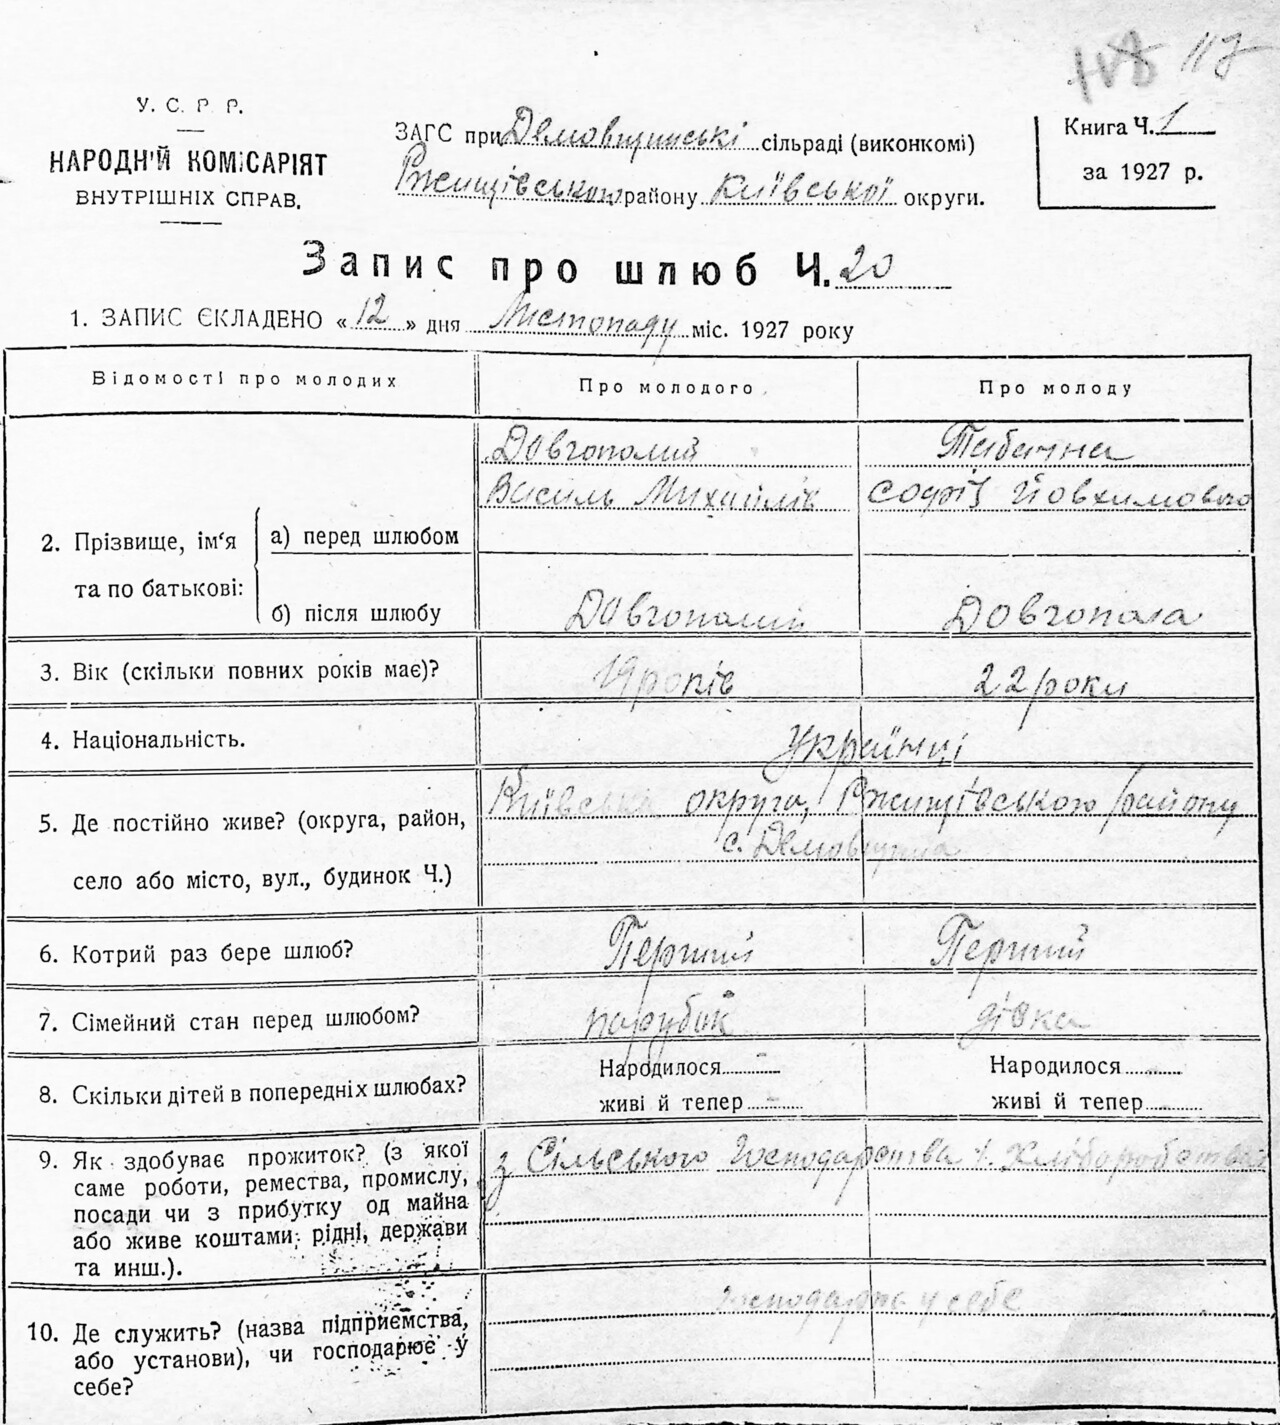 117
У. С. Р Р.
НАРОДНІЙ КОМІСАРІЯТ
ВНУТРІШНІХ СПРАВ.
ЗАГС при Демовщинські сільраді (виконкомі)
Ржищівського району Київської округи.
Книга Ч. 1
за 1927 р.
Запис про шлюб Ч. 20
1. ЗАПИС ЄКЛАДЕНО «12» дня Листопаду міс. 1927 року
Відомості про молодих
Про молодого
Про молоду
2. Прізвище, ім‘я
та по батькові:
а) перед шлюбом
Довгополий
Василь Михайлів
Табачна
Софія Йовхимовна
б) після шлюбу
Довгополий
Довгопола
3. Вік (скільки повних років має)?
19 років
22 роки
4. Національність.
Українці
5. Де постійно живе? (округа, район,
село або місто, вул., будинок Ч.)
Київська округа, Ржищівського району
с. Демовщина
6. Котрий раз бере шлюб?
Перший
Перший
7. Сімейний стан перед шлюбом?
парубок
дівка
8. Скільки дітей в попередніх шлюбах?
Народилося -
живі й тепер -
Народилося -
живі й тепер -
9. Як здобуває прожиток? (з якої
саме роботи, ремества, промислу,
посади чи з прибутку од майна
або живе коштами рідні, держави
та инш.).
з Сільського Господарства т. Хліборобства
10. Де служить? (назва підприємства,
або установи), чи господарює у
себе?
у себе